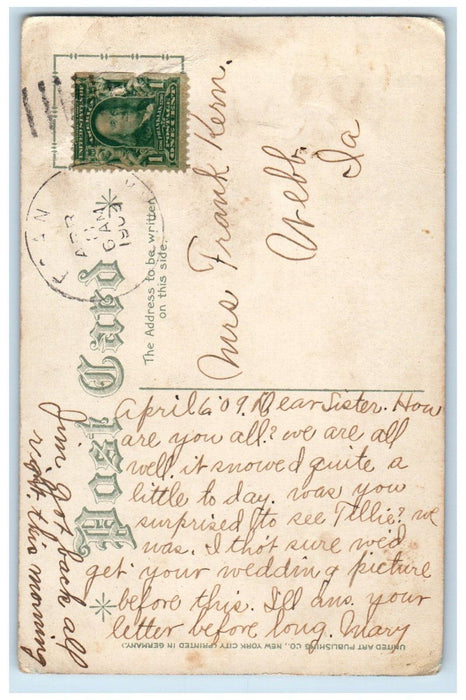 Post Card
The Address to be written
on this side.
APR
6 AM
1909
Mrs Frank Kern.
Webb.
Ia
April 6 09. Dear Sister. How
are you all? we are all
well. it snowed quite a
little to day. was you
surprised to see Tillie? we
was. I thot sure we'd
get your wedding picture
before this. I'll ans. your
letter before long. Mary
Jim got back all
right this morning
UNITED ART PUBLISHING CO., NEW YORK CITY (PRINTED IN GERMANY.)